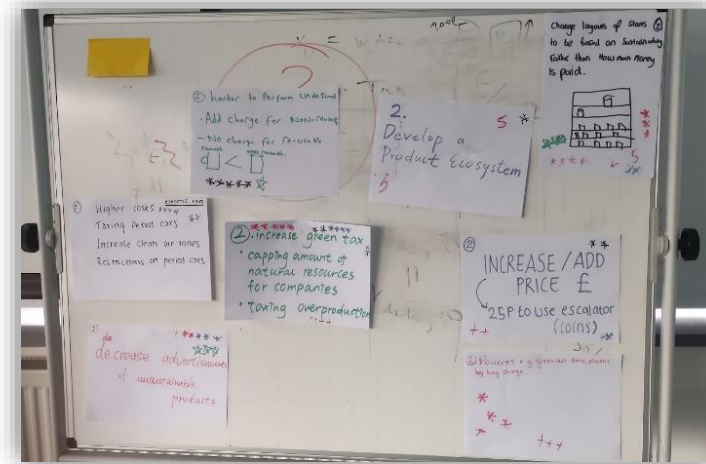 Change layouts of stores ②
to be based on Sustainability
rather than how much money
is paid.
② harder to Perform undesired
- Add charge for Non-reusable
- No charge for re-usable
<
*****
2.
Develop a
Product Ecosystem
5
5
*
***
****
5
②
Higher costs
electric cars
Taxing Petrol cars
**
Increase clean air zones
Restrictions on petrol cars
② • increase green tax
• capping amount of
natural resources
for companies
• taxing overproduction
+++
②
**
INCREASE / ADD
PRICE £
25P to use escalator
(coins)
++
**
decrease advertisements
of unsustainable
products.
② Policies e.g. green air zone, plastic
bag charge
*
*
*
*
+++